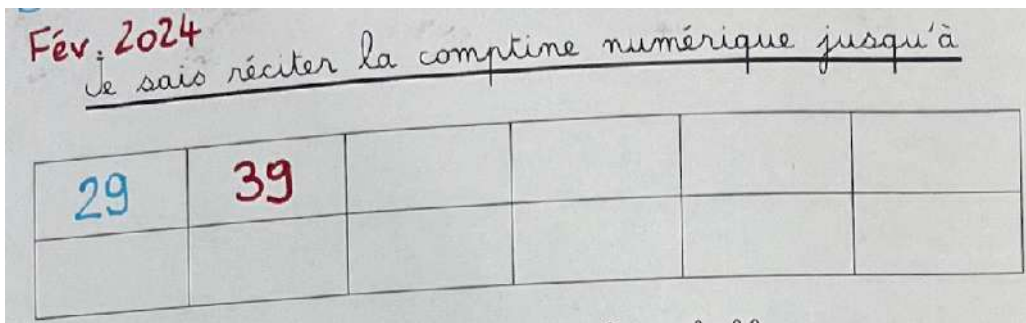 Fév. 2024
Je sais réciter la comptine numérique jusqu'à
29 39